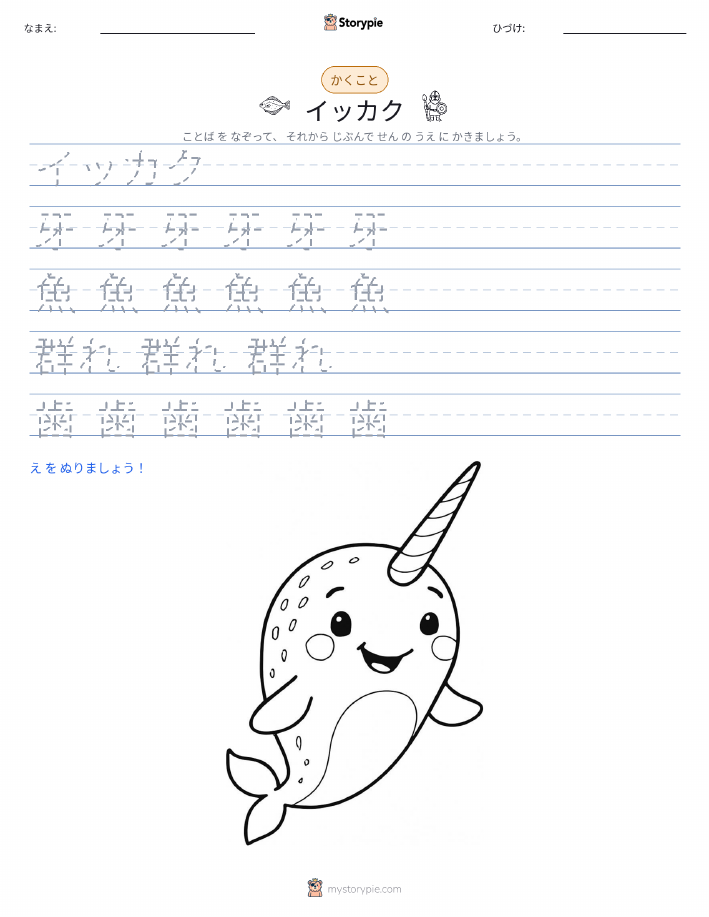 なまえ:
Storypie
ひづけ:
かくこと
イッカク
ことば を なぞって、 それから じぶんで せん の うえ に かきましょう。
イッカク
牙 牙 牙 牙 牙 牙
魚 魚 魚 魚 魚 魚
群れ 群れ 群れ
歯 歯 歯 歯 歯 歯
え を ぬりましょう！
mystorypie.com